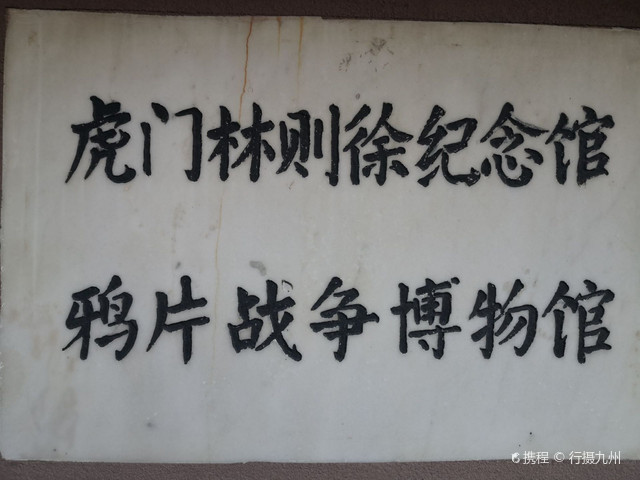 虎门林则徐纪念馆
鸦片战争博物馆
携程 © 行摄九州